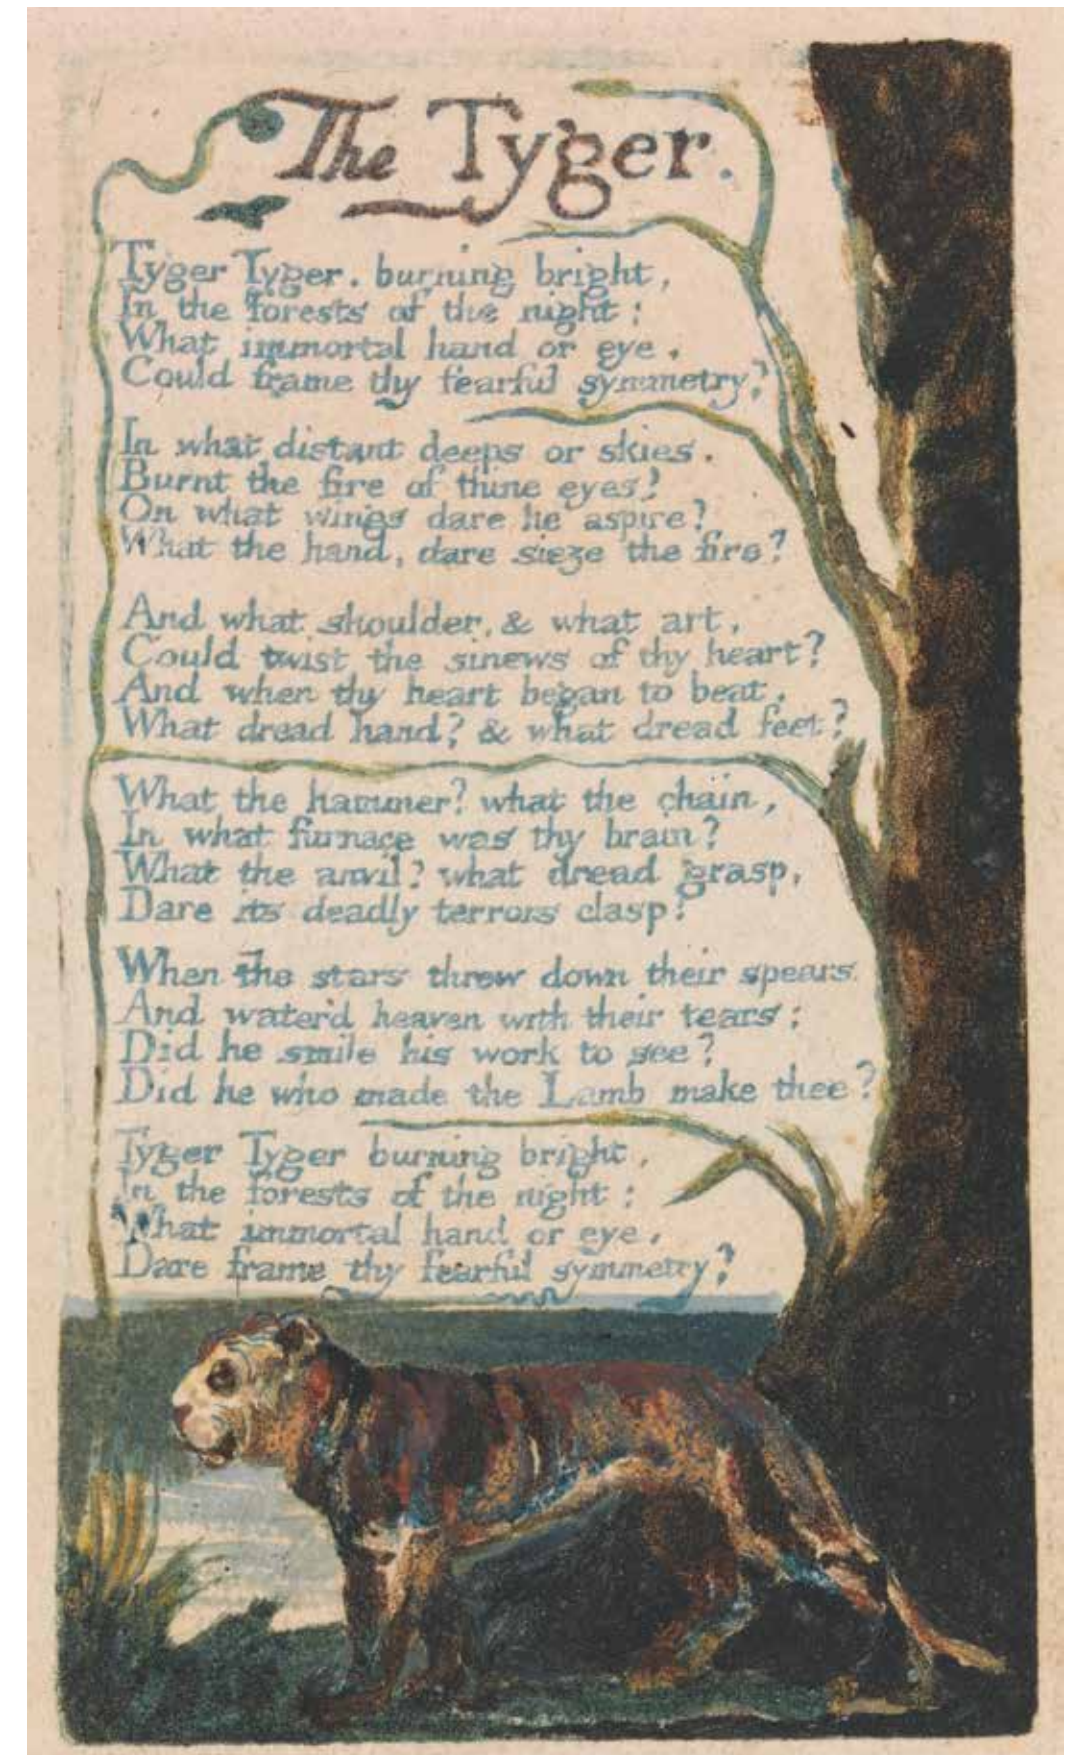 The Tyger.
Tyger Tyger. burning bright,
In the forests of the night:
What immortal hand or eye.
Could frame thy fearful symmetry?
In what distant deeps or skies.
Burnt the fire of thine eyes?
On what wings dare he aspire?
What the hand, dare sieze the fire?
And what shoulder, & what art,
Could twist the sinews of thy heart?
And when thy heart began to beat,
What dread hand? & what dread feet?
What the hammer? what the chain,
In what furnace was thy brain?
What the anvil? what dread grasp,
Dare its deadly terrors clasp?
When the stars threw down their spears
And water'd heaven with their tears:
Did he smile his work to see?
Did he who made the Lamb make thee?
Tyger Tyger burning bright,
In the forests of the night:
What immortal hand or eye,
Dare frame thy fearful symmetry?